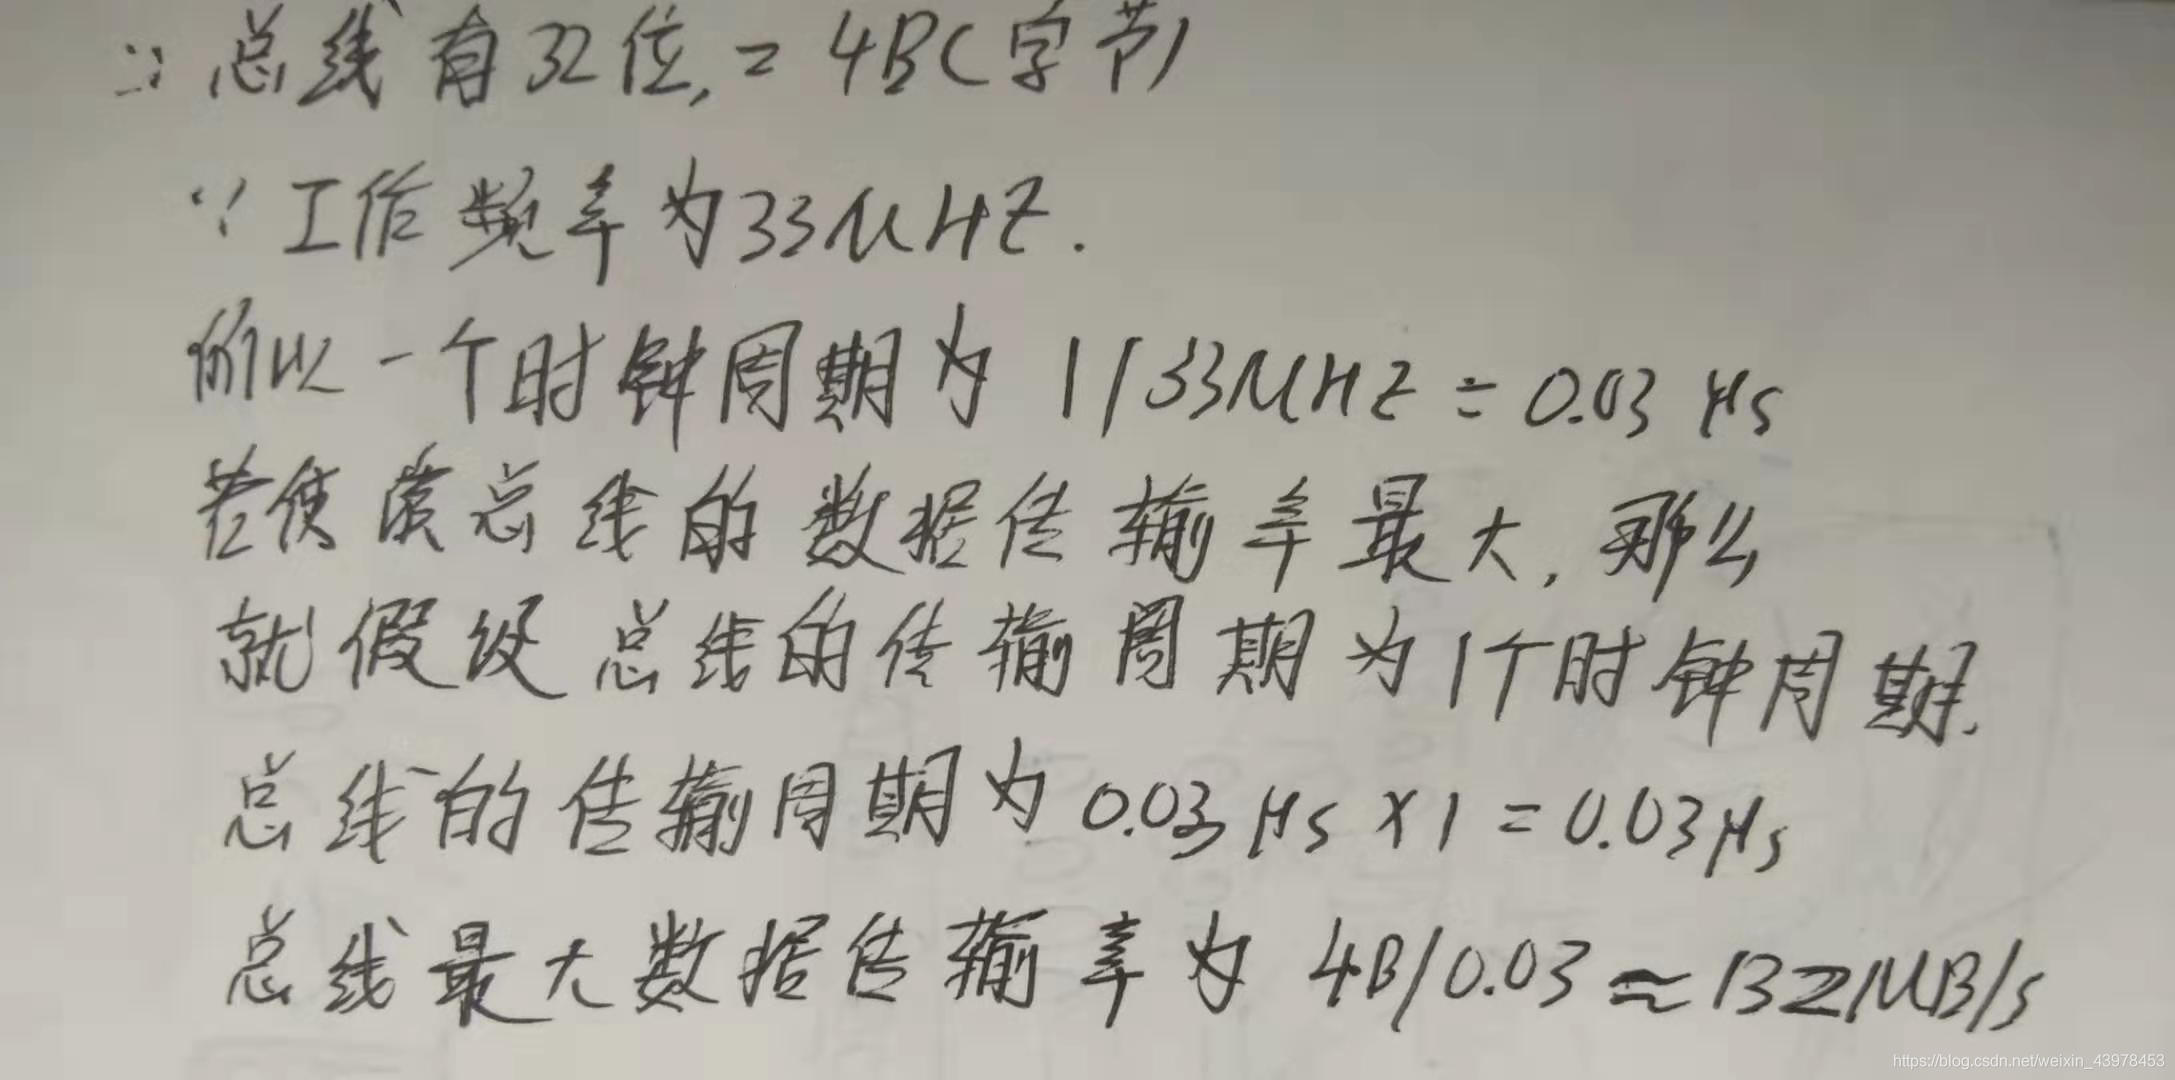 ∵ 总线有32位, = 4B(字节)
∵ 工作频率为33MHZ.
所以一个时钟周期为 1/33MHZ = 0.03 μs
若使该总线的数据传输率最大, 那么
就假设总线的传输周期为1个时钟周期.
总线的传输周期为 0.03 μs × 1 = 0.03μs
总线最大数据传输率为 4B/0.03 ≈ 132MB/s
https://blog.csdn.net/weixin_43978453